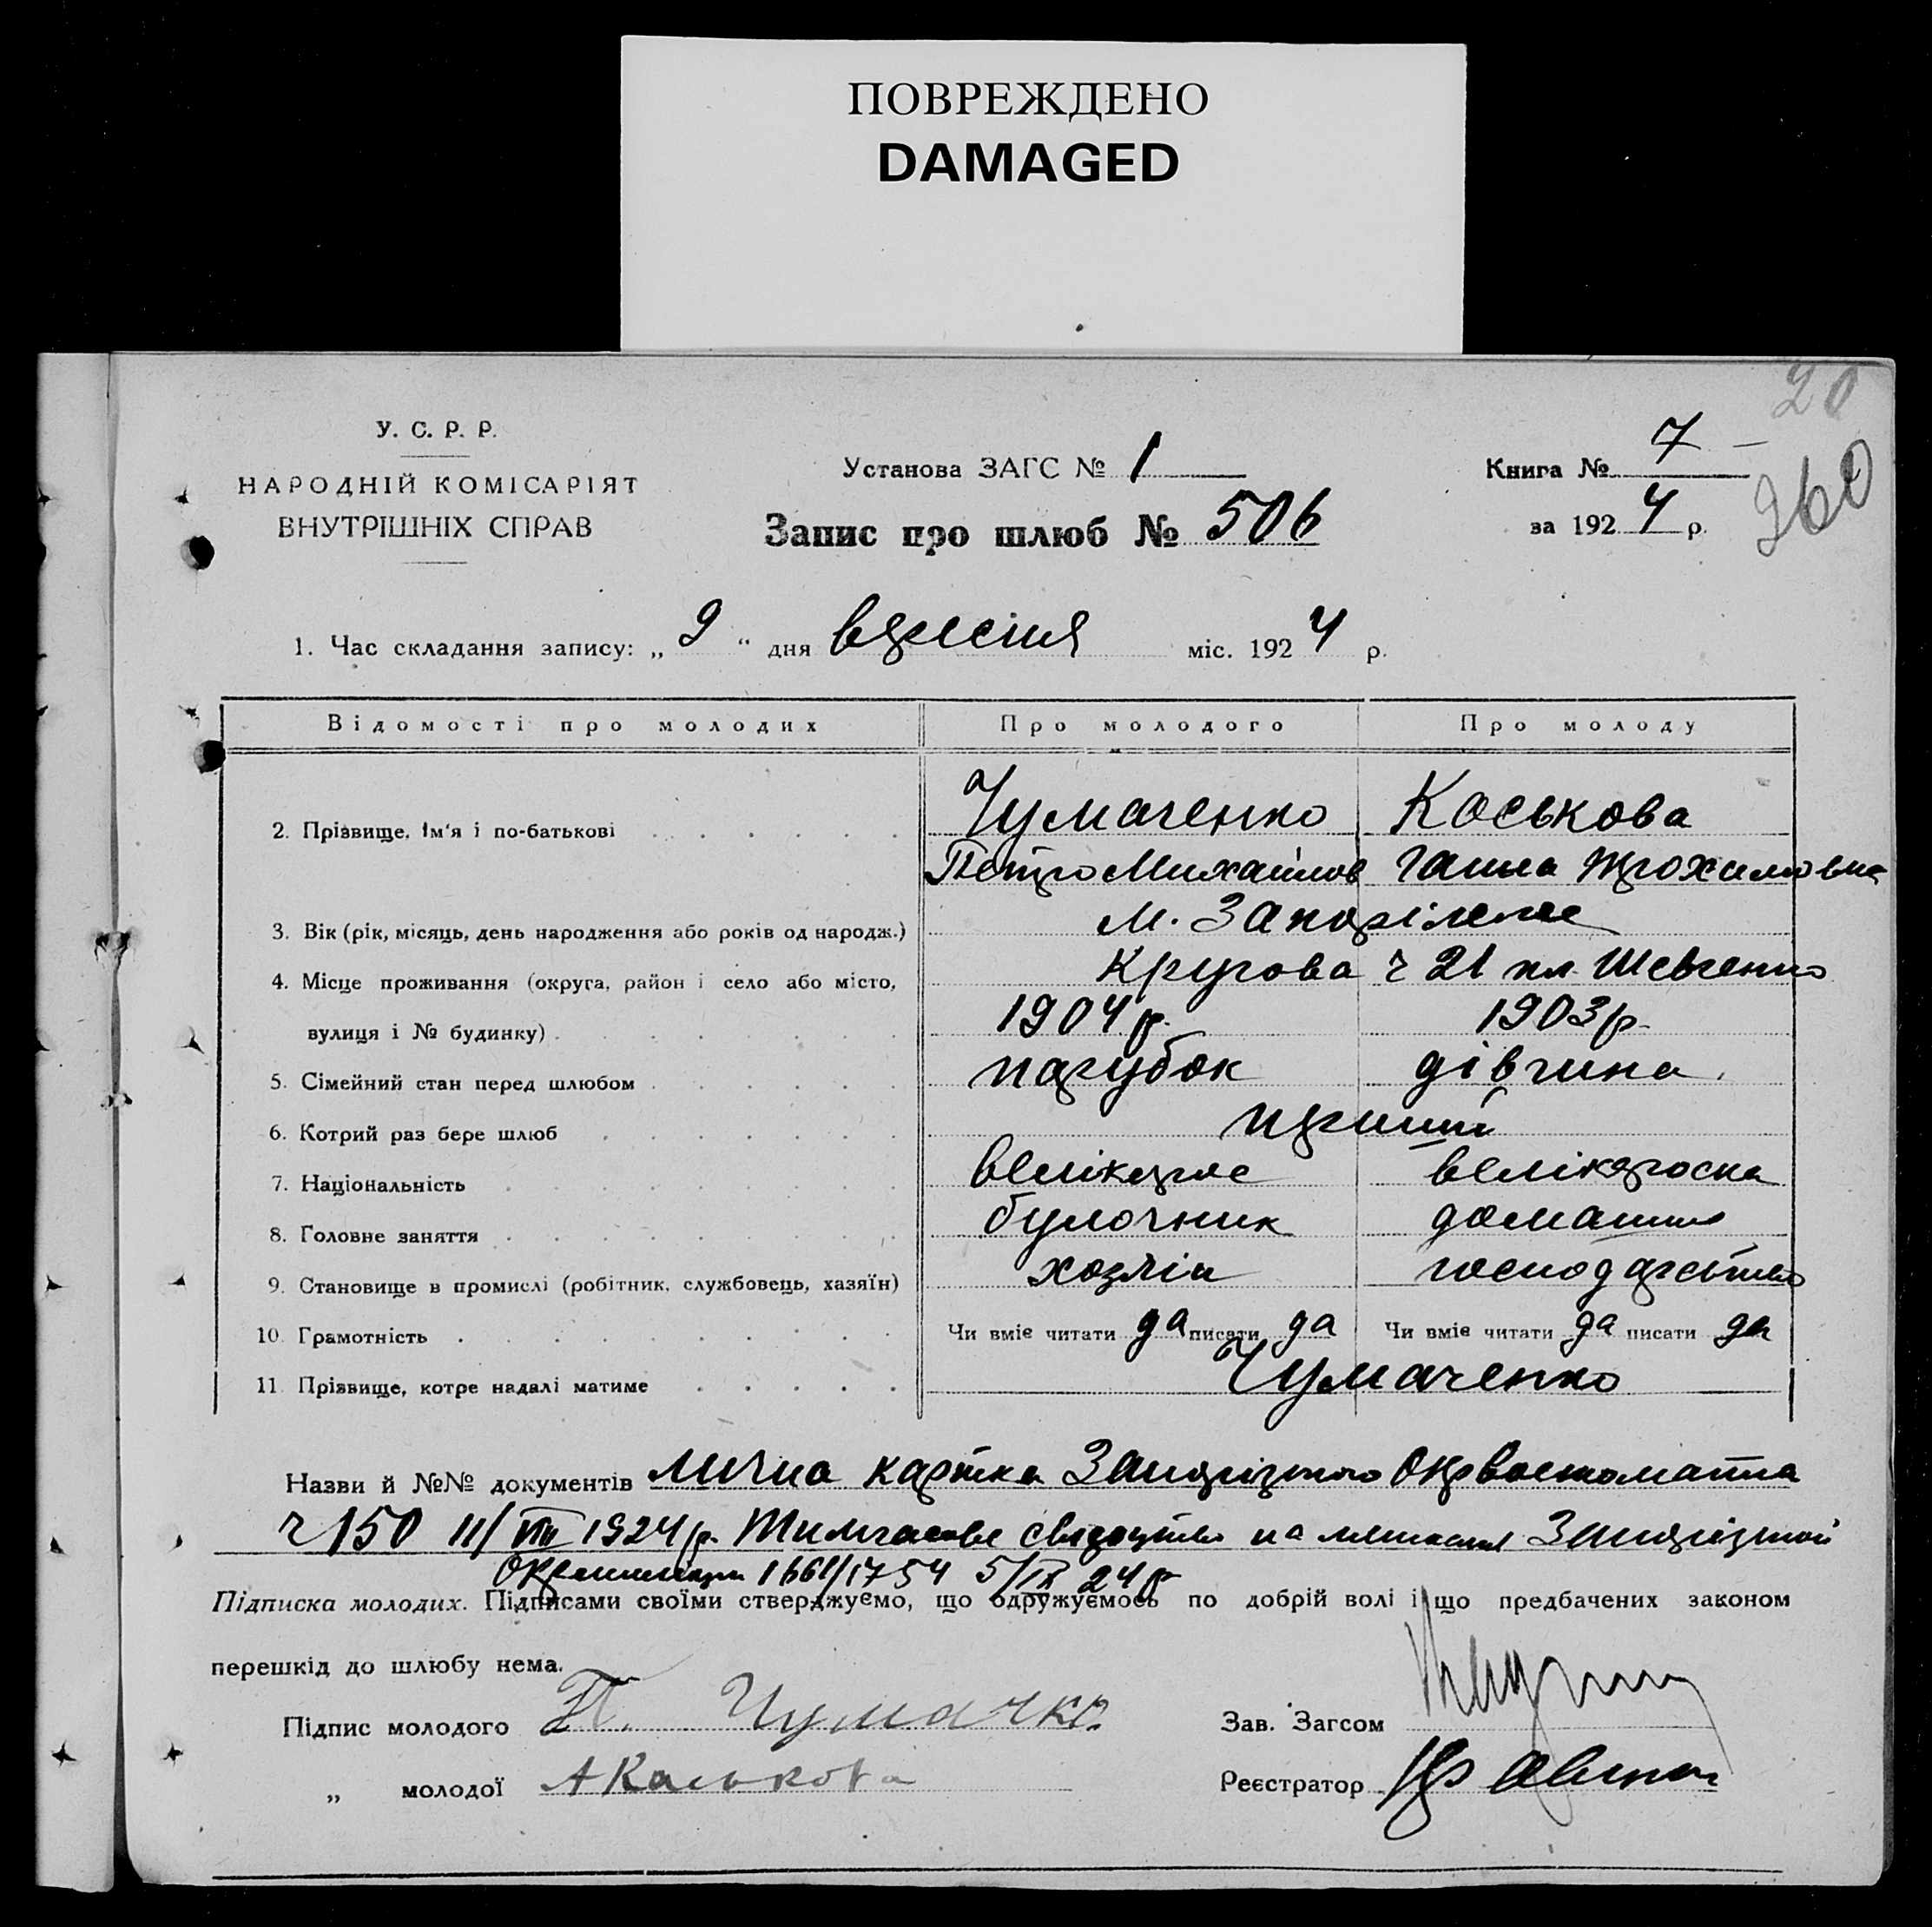 ПОВРЕЖДЕНО
DAMAGED
20
У. С. Р. Р.
НАРОДНІЙ КОМІСАРІЯТ
ВНУТРІШНІХ СПРАВ
Установа ЗАГС № 1
Запис про шлюб № 506
Книга № 7
за 1924 р.
260
1. Час складання запису: „ 9 “ дня вересіня міс. 1924 р.
Відомості про молодих Про молодого Про молоду
2. Прізвище, ім'я і по-батькові Чумаченко Коськова
Петро Михайлов Ганна Трохимовна
3. Вік (рік, місяць, день народження або років од народж.) м. Запоріжже
4. Місце проживання (округа, район і село або місто, Кругова ч 21 пл. Шевченко
вулиця і № будинку) 1904 р. 1903 р.
5. Сімейний стан перед шлюбом парубок дівчина
6. Котрий раз бере шлюб перший
7. Національність велікорос велікороска
8. Головне заняття булочник домашнє
9. Становище в промислі (робітник, службовець, хазяїн) хозяін господарство
10. Грамотність Чи вміє читати да писати да Чи вміє читати да писати да
11. Прізвище, котре надалі матиме Чумаченко
Назви й №№ документів лична картка Запорізького Окрвоєнкомата
ч 150 11/VIII 1924 р. Тимчасове свідоцтво на мешкання Запорізької
Окрміліціи 1661/1754 5/IX 24 р
Підписка молодих. Підписами своїми стверджуємо, що одружуємось по добрій волі і що предбачених законом
перешкід до шлюбу нема.
Підпис молодого П. Чумачко
Зав. Загсом
„ молодої А Каськова
Реєстратор